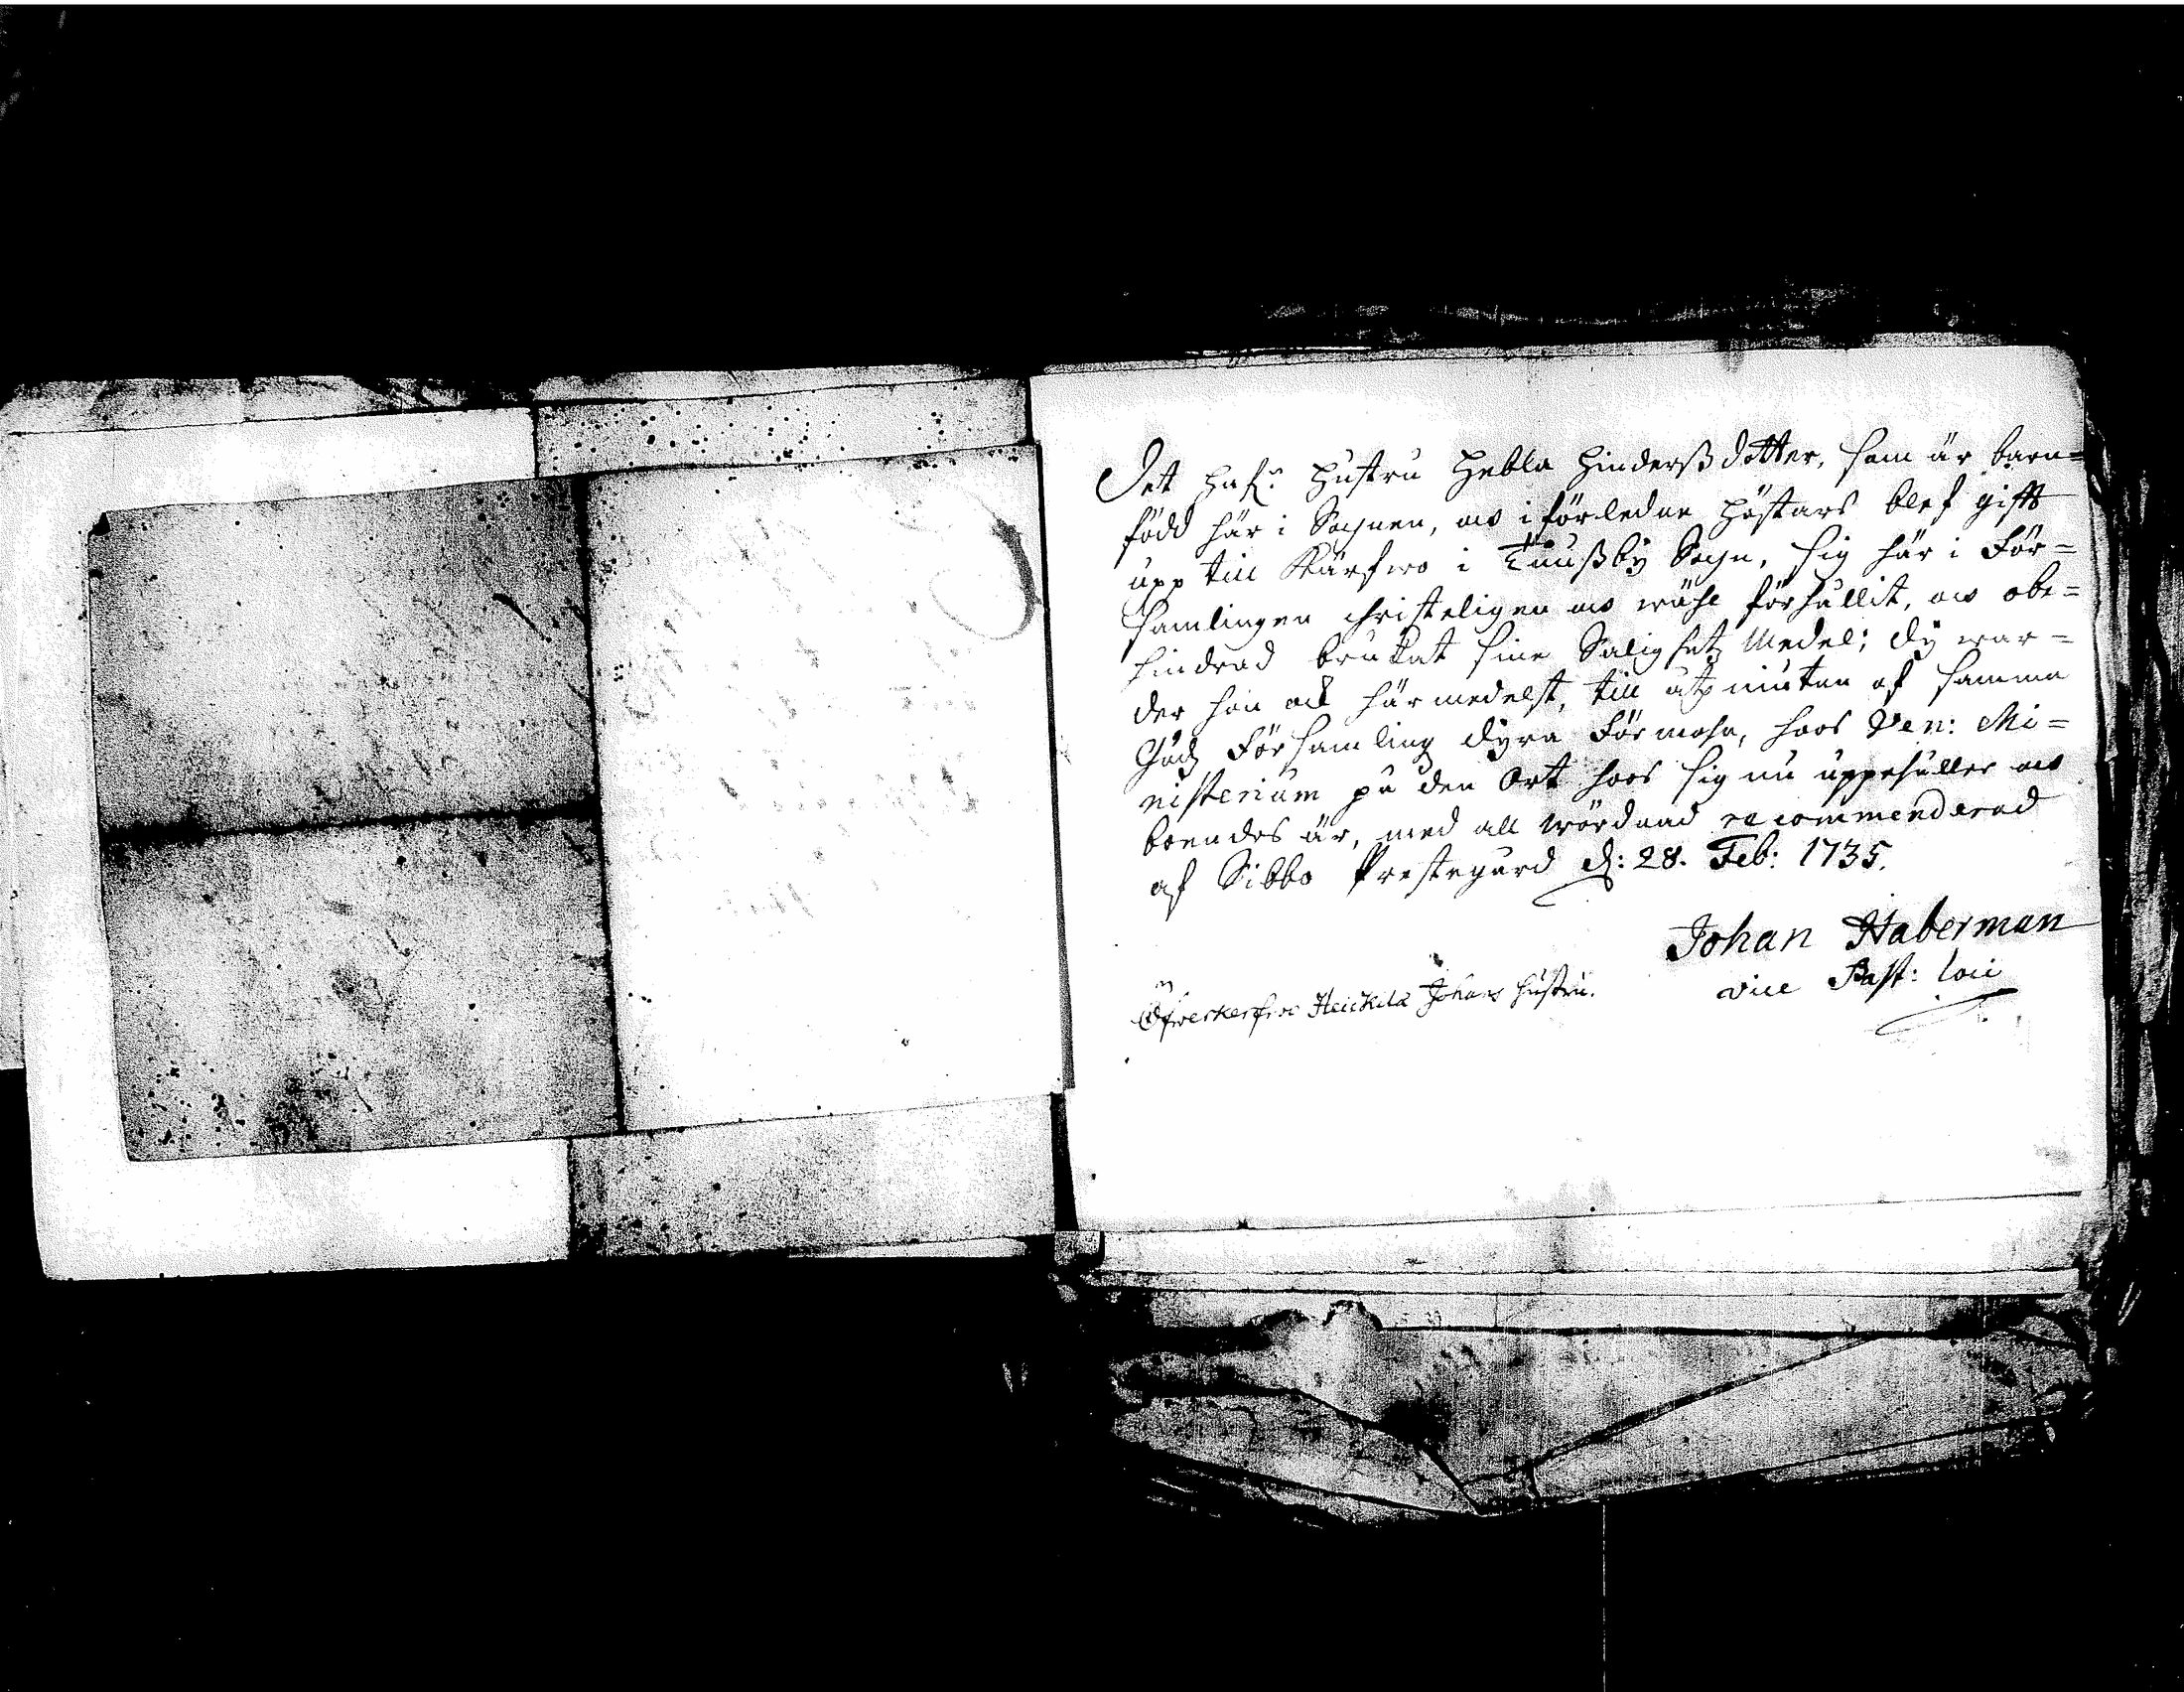 Det haf:r hustru Hebla Hinderß dotter, som är barn=
född här i Sognen, och i förledne höstars blef gifft
upp till Kärfwo i Tuußby Sogn, sig här i För=
samlingen christeligen och wähl förhållit, och obe=
hindrad brukat sine Salighetz Medel; dy war=
der hon ock här medelst, till åtniutan af samma
Gudz Församling dyra Förmohn, hoos Ven: Mi=
nisterium på den Ort hoos sig nu uppehåller och
boendes är, med all wördnad recommenderad
af Sibbo Prestegård d: 28. Feb: 1735.
Johan Haberman
vice Past: loci
Öfwerkerfwo Heickilä Johans hustru.